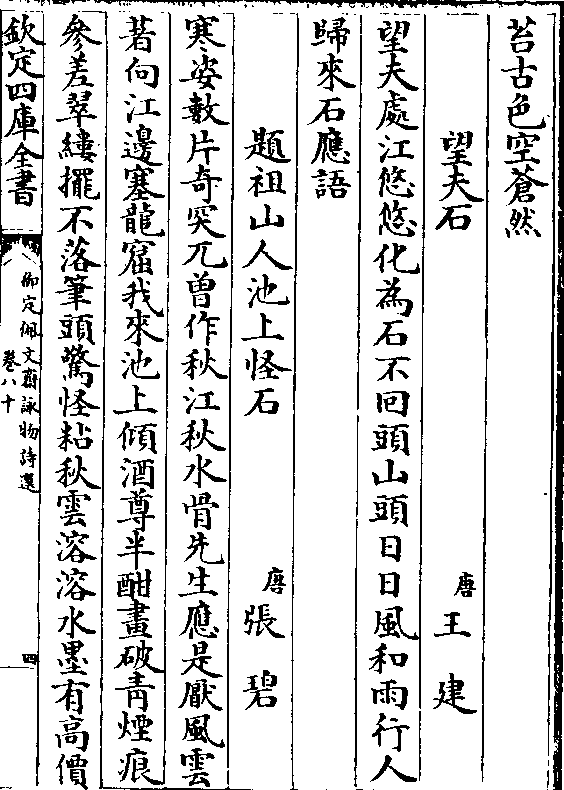 苔古色空蒼然
望夫石 唐 王建
望夫處江悠悠化為石不回頭山頭日日風和雨行人
歸來石應語
題祖山人池上怪石 唐 張碧
寒姿數片奇突兀曾作秋江秋水骨先生應是厭風雲
著向江邊塞龍窟我來池上傾酒尊半酣畫破青煙痕
參差翠縷擺不落筆頭驚怪粘秋雲溶溶水墨有高價
欽定四庫全書
御定佩文齋詠物詩選
卷八十
四